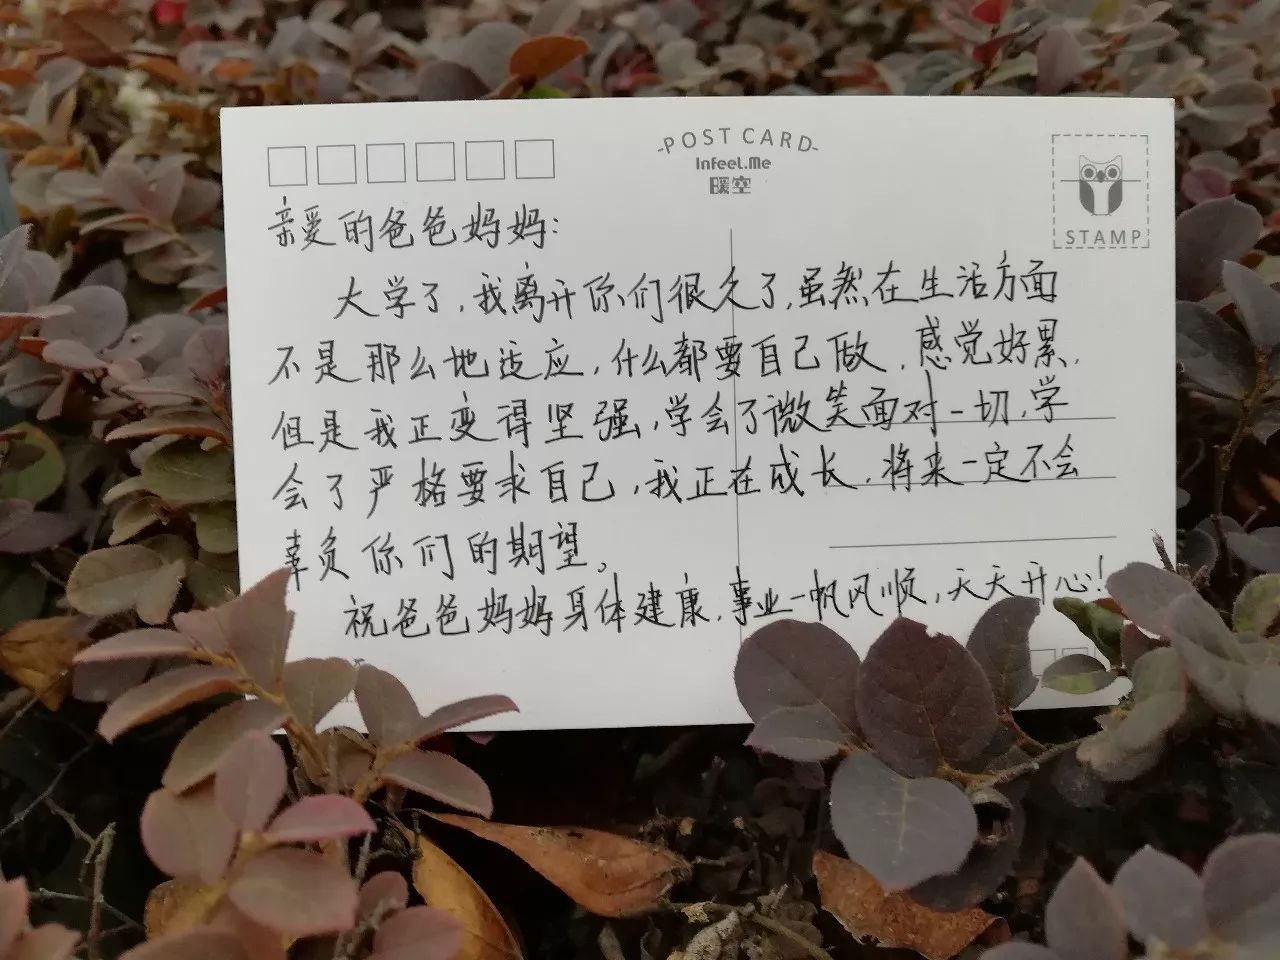 POST CARD
InfeeL.Me
暖空
STAMP
亲爱的爸爸妈妈：
大学了，我离开你们很久了，虽然在生活方面
不是那么地适应，什么都要自己做，感觉好累，
但是我正变得坚强，学会了微笑面对一切，学
会了严格要求自己，我正在成长，将来一定不会
辜负你们的期望。
祝爸爸妈妈身体建康，事业一帆风顺，天天开心！